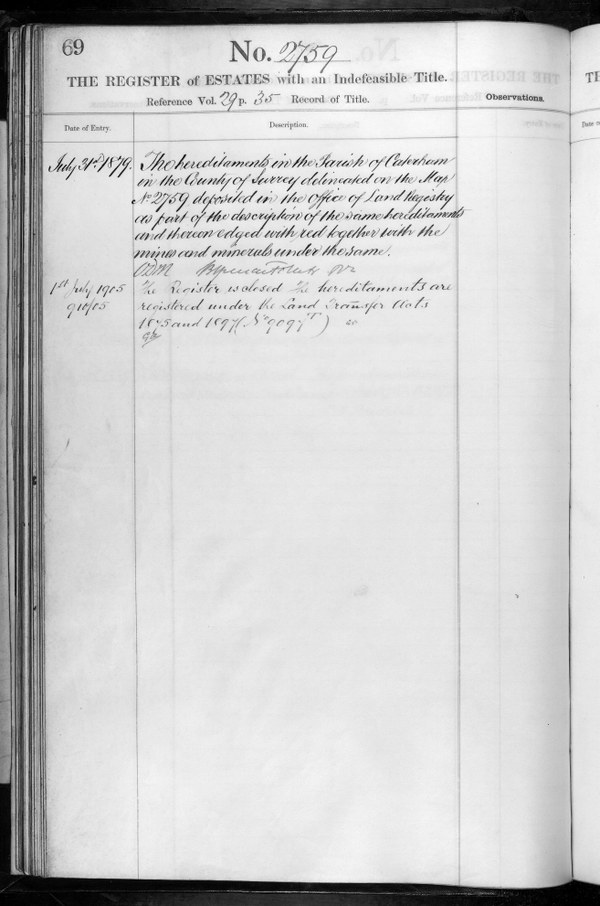 69
No. 2759
THE REGISTER of ESTATES with an Indefeasible Title.
Reference Vol. 29 p. 35 Record of Title.
Observations.
Date of Entry.
Description.
July 31st 1879.
The hereditaments in the Parish of Caterham
in the County of Surrey delineated on the Map
No 2759 deposited in the Office of Land Registry
as part of the description of the same hereditaments
and thereon edged with red together with the
mines and minerals under the same.
1st July 1905
The Register is closed The hereditaments are
registered under the Land Transfer Acts
1875 and 1897 (No